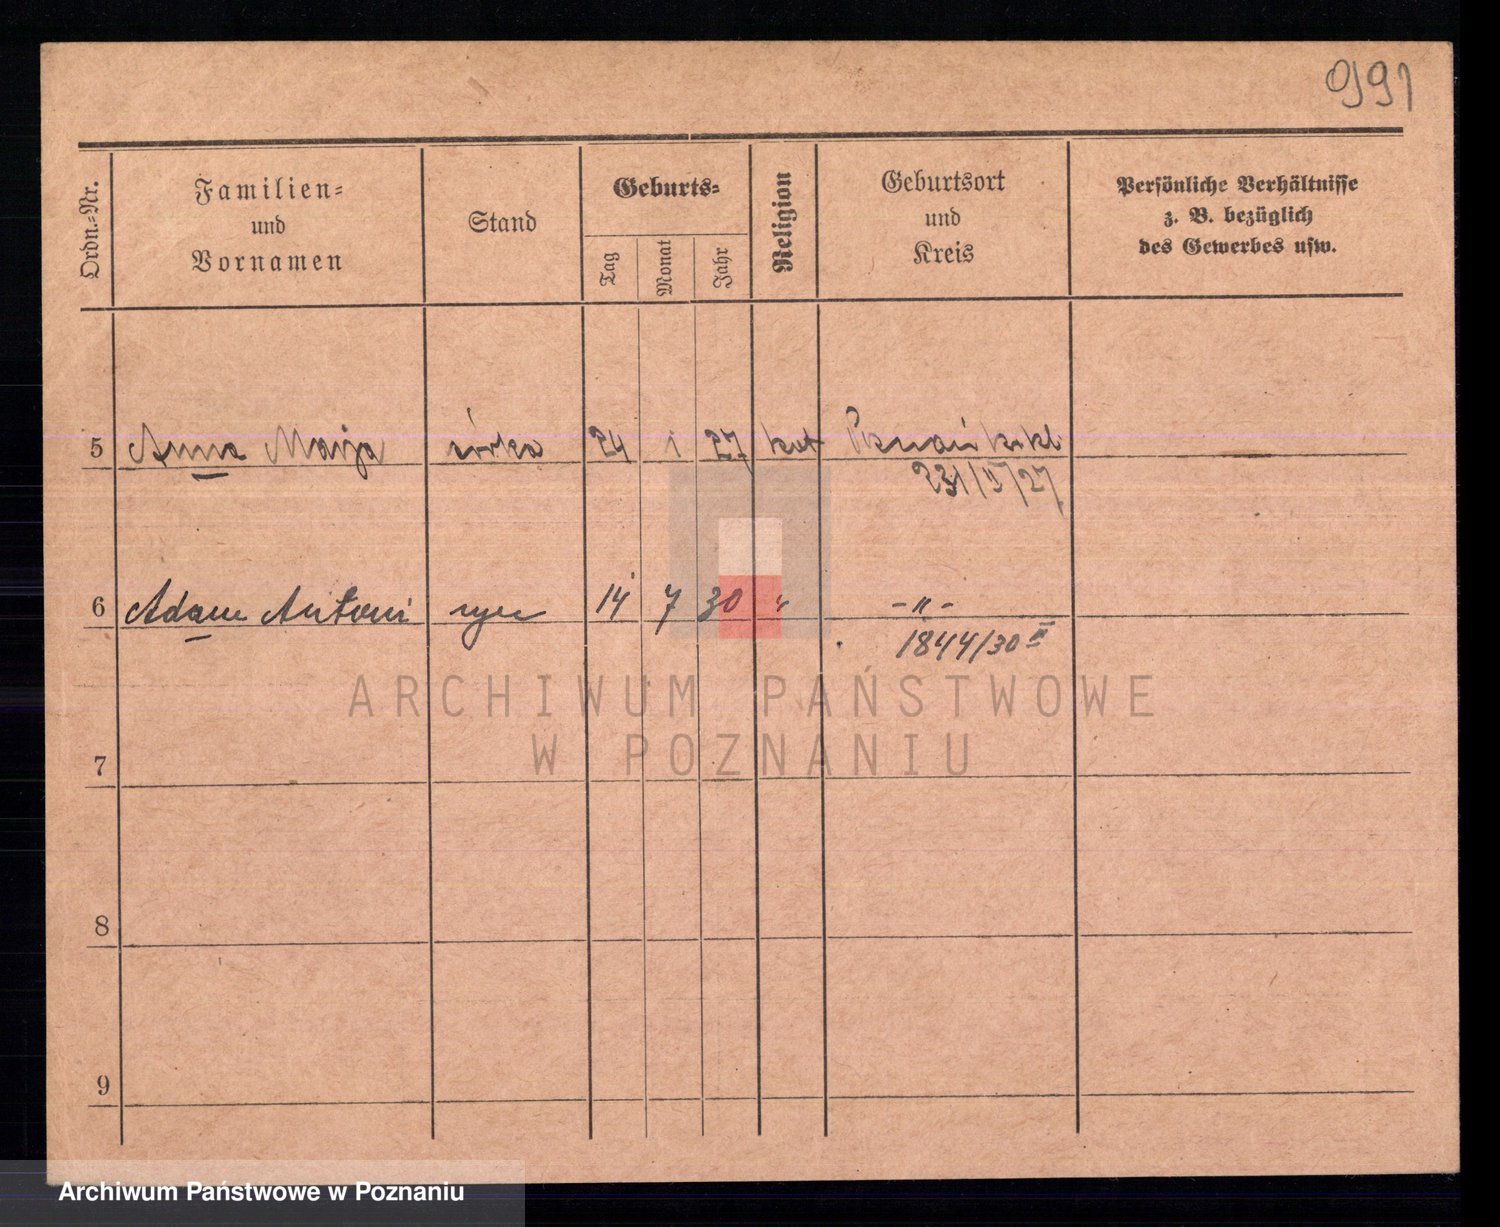 991
Ordn.-Nr.
Familien-
und
Vornamen
Stand
Geburts-
Tag
Monat
Jahr
Religion
Geburtsort
und
Kreis
Persönliche Verhältnisse
z. B. bezüglich
des Gewerbes usw.
5 Anna Marja córka 24 1 27 kat Poznań
231/I/27
6 Adam Antoni syn 14 7 30 " -"-
1844/30 II
7
8
9
ARCHIWUM PAŃSTWOWE
W POZNANIU
Archiwum Państwowe w Poznaniu